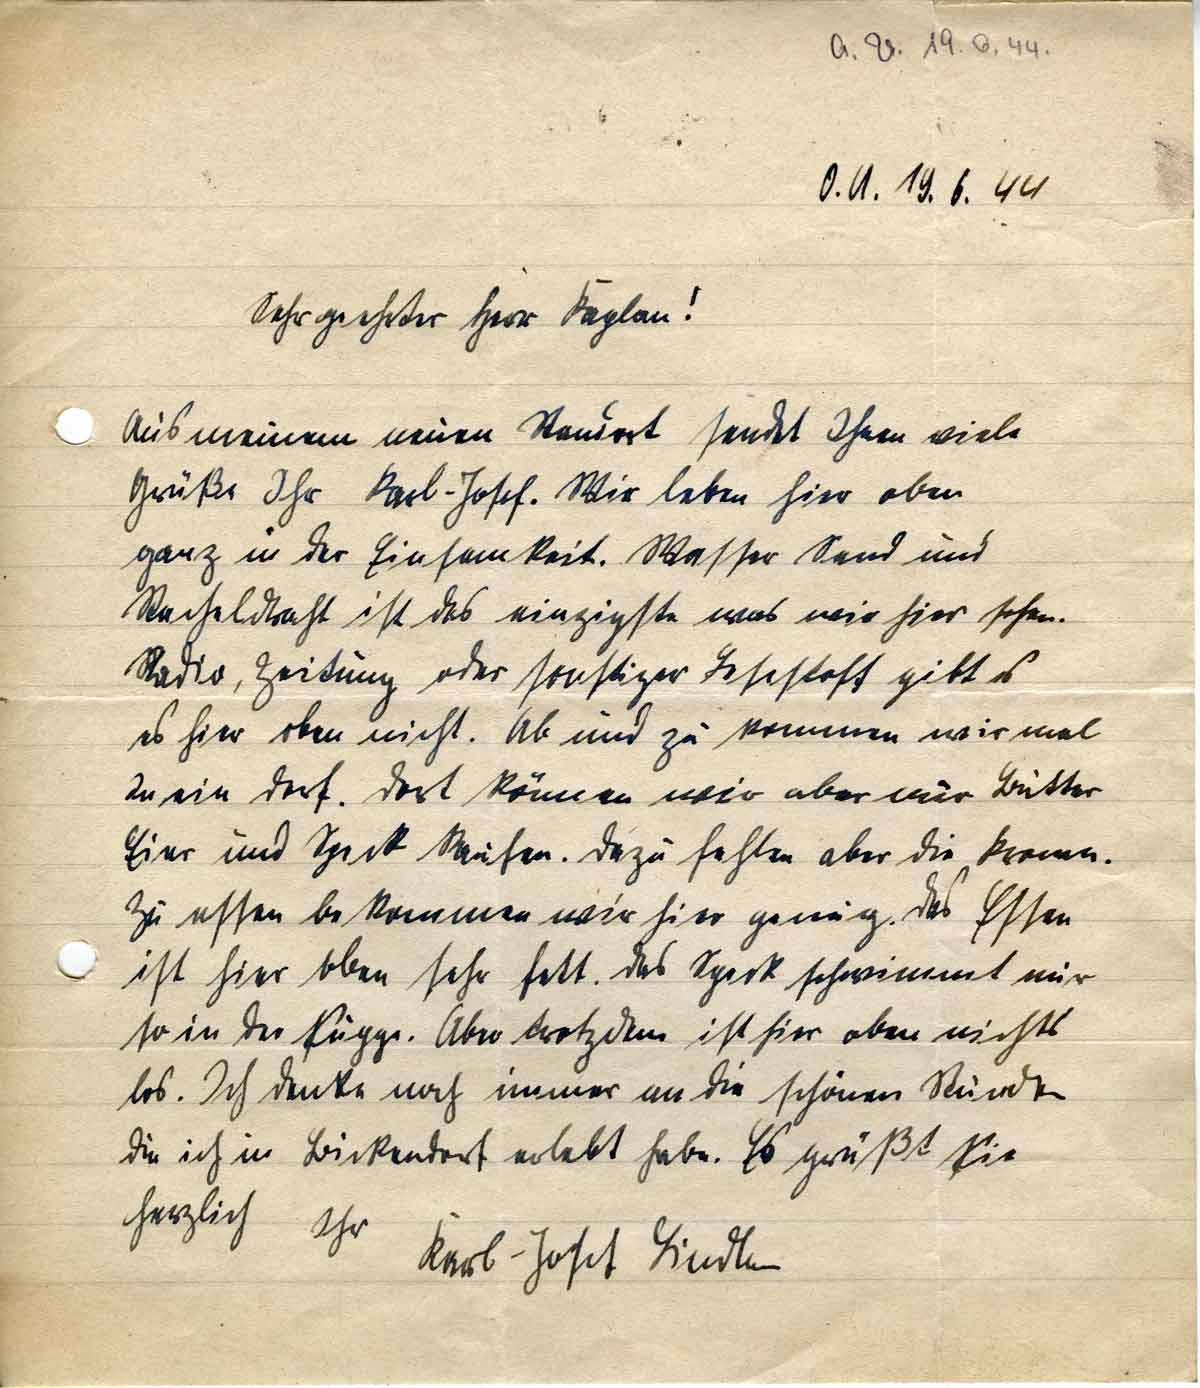 19. 6. 44.
O.U. 19. 6. 44
Sehr geehrter Herr Kaplan!
Aus meinem neuen Standort sendet Ihnen viele
Grüße Ihr Karl-Josef. Wir leben hier oben
ganz in der Einsamkeit. Wasser Sand und
Stacheldraht ist das einzigste was wir hier sehen.
Radio, Zeitung oder sonstiger Lesestoff gibt es
es hier oben nicht. Ab und zu kommen wir mal
in ein Dorf. Dort können wir aber nur Butter
Eier und Speck kaufen. Dazu fehlen aber die Kronen.
Zu essen bekommen wir hier genug. Das Essen
ist hier oben sehr fett. Das Speck schwimmt nur
so in der Suppe. Aber trotzdem ist hier oben nichts
los. Ich denke noch immer an die schönen Stunden
die ich in Bickendorf erlebt habe. Es grüßt Sie
herzlich Ihr
Karl-Josef